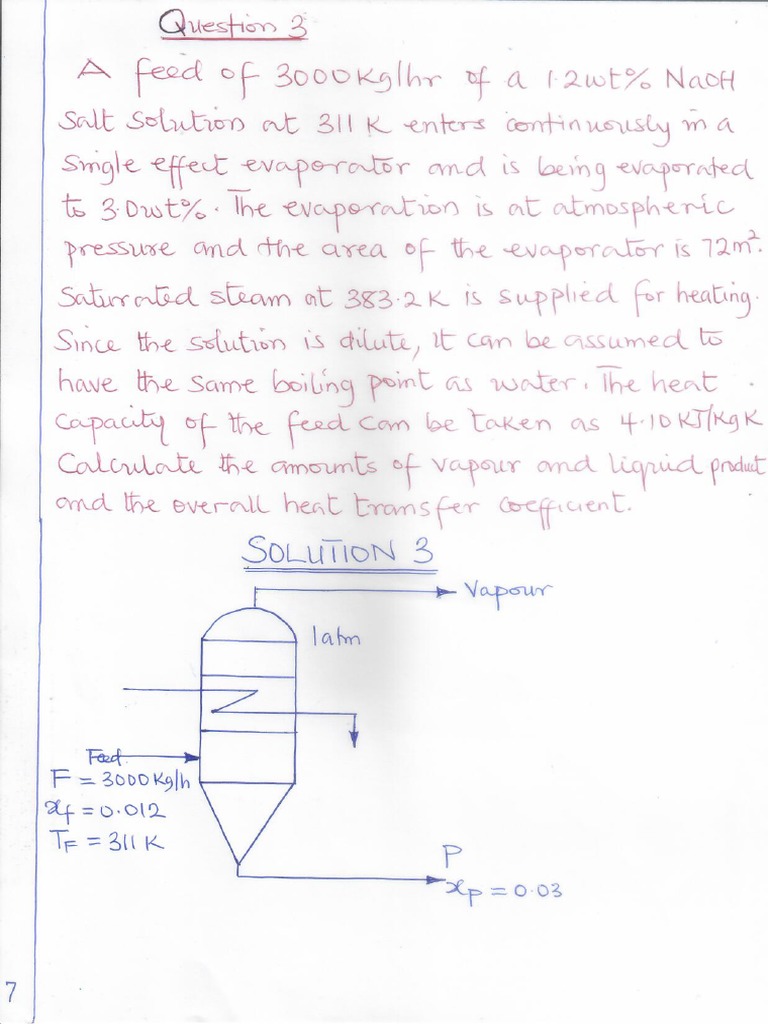 Question 3
A feed of 3000Kg/hr of a 1.2wt% NaOH
Salt solution at 311 K enters continuously in a
Single effect evaporator and is being evaporated
to 3.0wt%. The evaporation is at atmospheric
pressure and the area of the evaporator is 72m².
Saturated steam at 383.2K is supplied for heating.
Since the solution is dilute, it can be assumed to
have the same boiling point as water. The heat
capacity of the feed can be taken as 4.10 KJ/Kg K
Calculate the amounts of vapour and liquid product
and the overall heat transfer coefficient.
SOLUTION 3
Vapour
1atm
Feed
F = 3000Kg/h
xf = 0.012
TF = 311 K
P
xp = 0.03
7